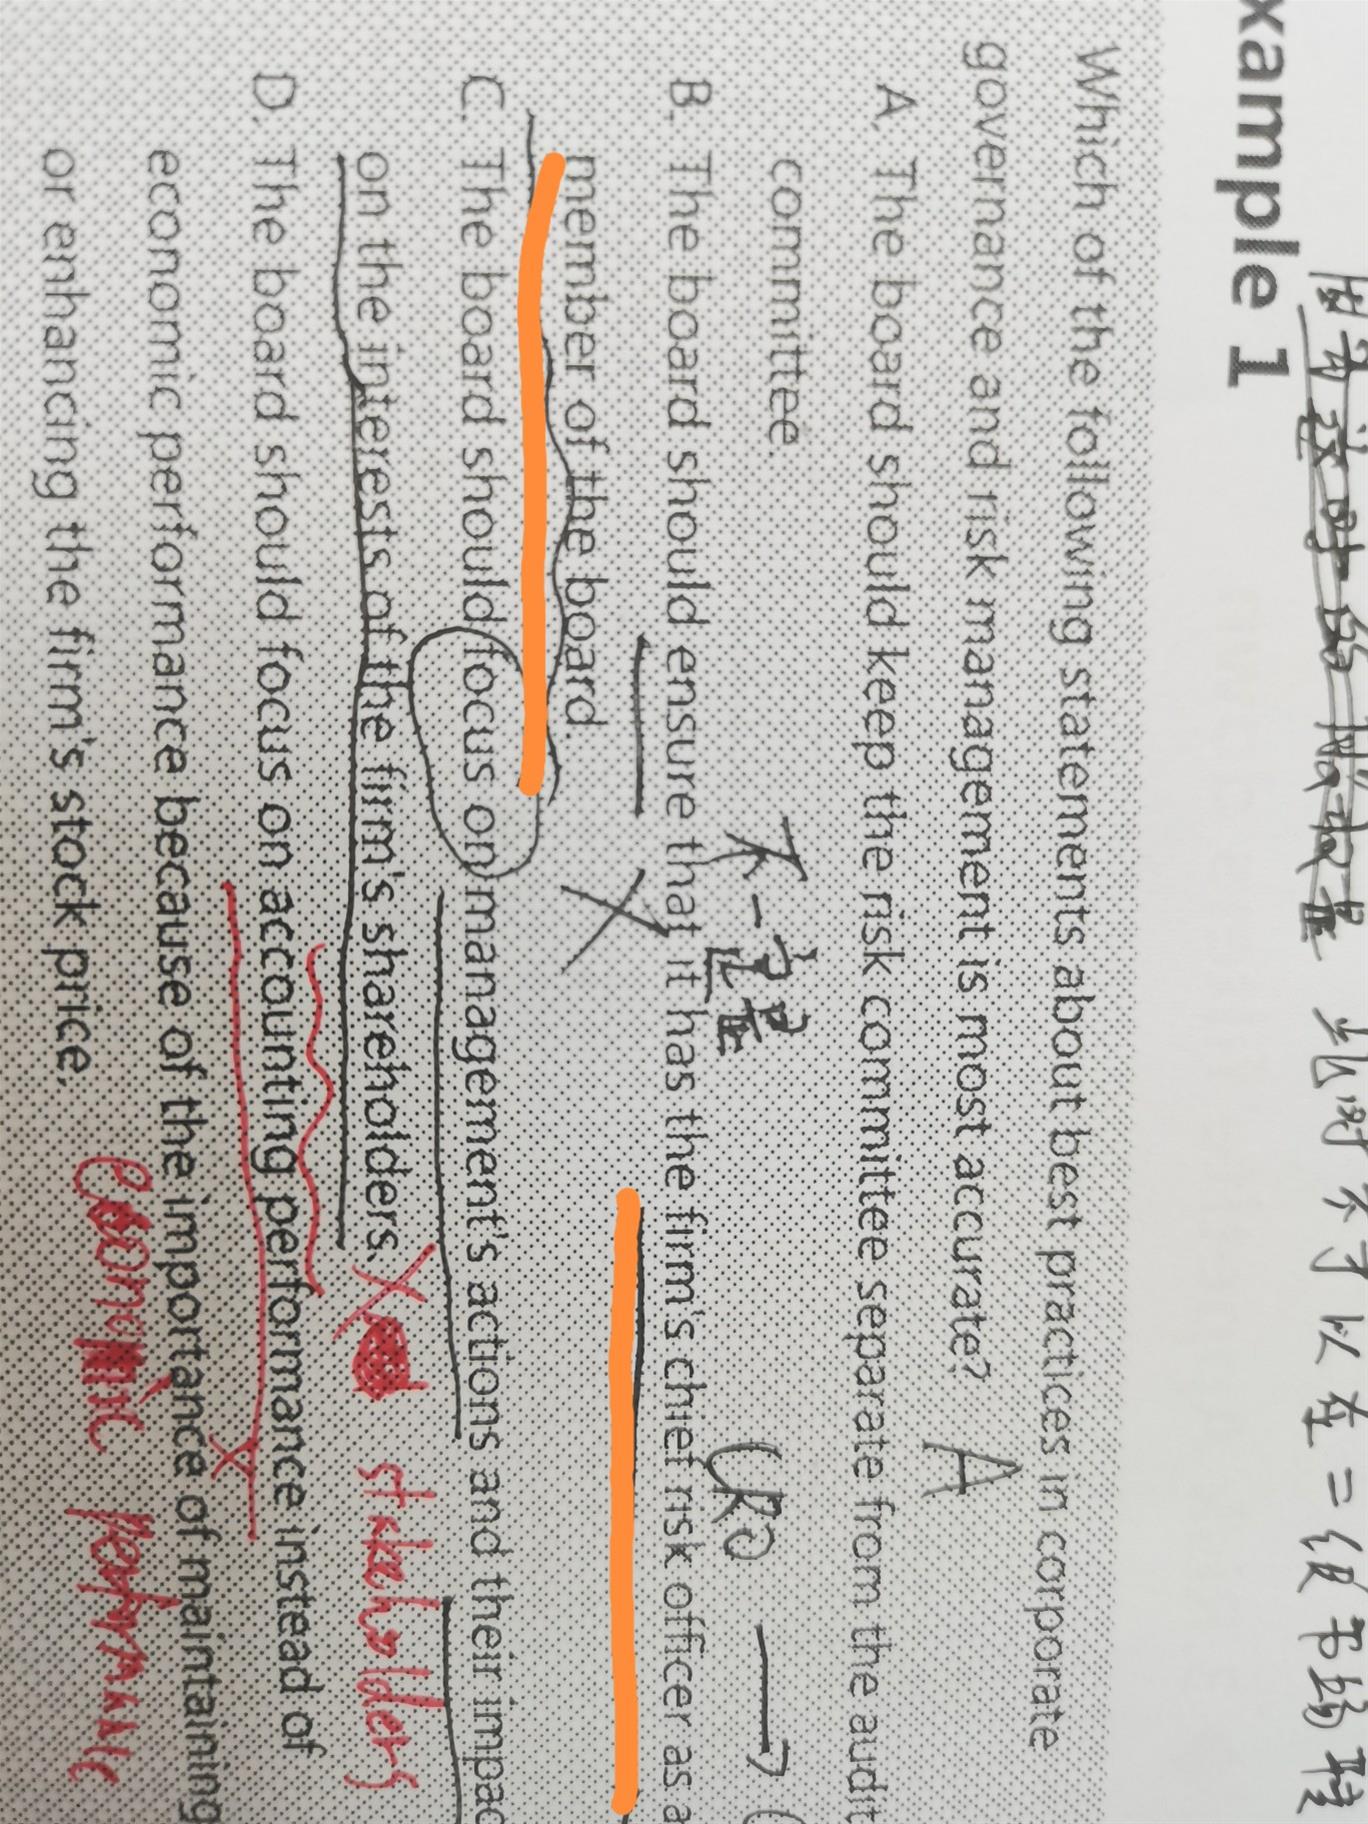 xample 1
Which of the following statements about best practices in corporate
governance and risk management is most accurate? A
A. The board should keep the risk committee separate from the audit
committee.
不一定是 CRO →
B. The board should ensure that it has the firm's chief risk officer as a
member of the board.
C. The board should focus on management's actions and their impac
on the interests of the firm's shareholders. stakeholders
D. The board should focus on accounting performance instead of
economic performance because of the importance of maintaining
or enhancing the firm's stock price.
economic